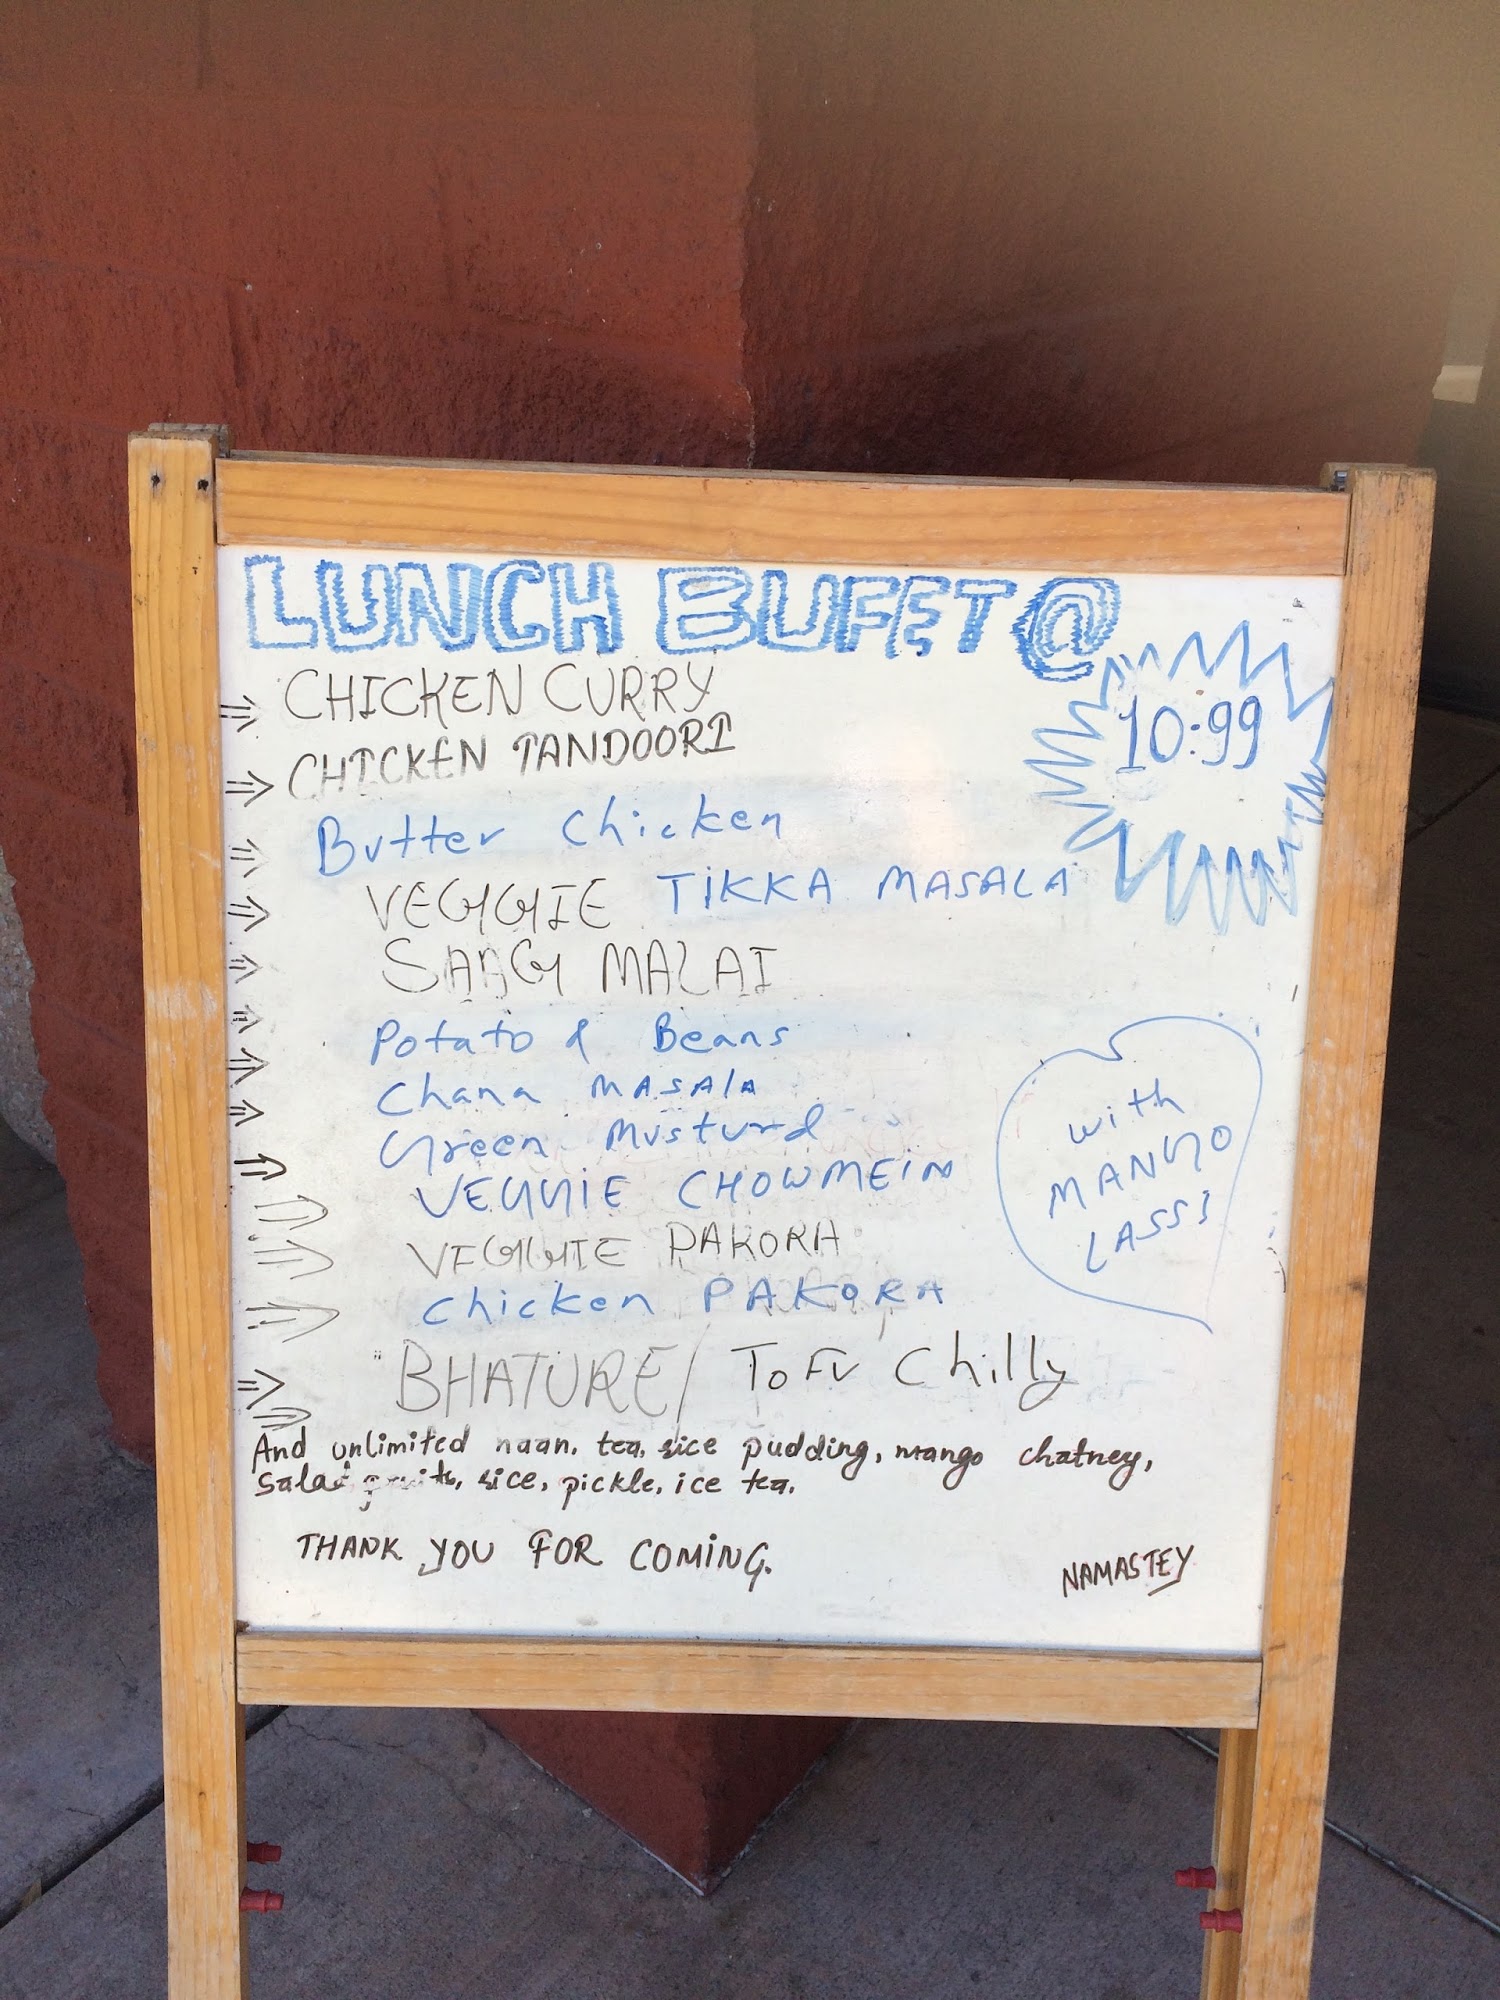 LUNCH BUFET @
10:99
CHICKEN CURRY
CHICKEN TANDOORI
Butter Chicken
VEGGIE TIKKA MASALA
SAAG MALAI
Potato & Beans
Chana MASAla
Green Musturd
VEGGIE CHOWMEIN
VEGGIE PAKORA
Chicken PAKORA
with
MANGO
LASSI
BHATURE/ TOFU Chilly
And unlimited naan, tea, rice pudding, mango chatney,
Salad, fruits, rice, pickle, ice tea.
THANK YOU FOR COMING.
NAMASTEY